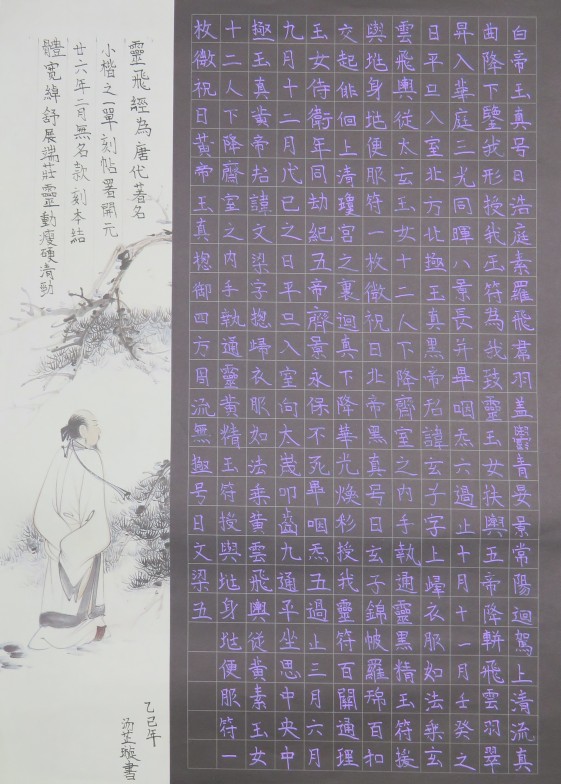 白帝玉真号曰浩庭素羅飛羣羽盖鬱青晏景常陽迴駕上清流真
曲降下鑒我形授我玉符為我致靈玉女扶輿五帝降軿飛雲羽翠
昇入華庭三光同暉八景長并畢咽炁六過止十月十一月壬癸之
日平旦入室北方北極玉真黑帝君諱玄子字上歸衣服如法乘玄
雲飛輿從太玄玉女十二人下降齋室之内手執通靈黑精玉符授
與地身地便服符一枚微祝曰北帝黑真号曰玄子錦帔羅珮百扣
交起俳佪上清瓊宮之裏迴真下降華光煥彩授我靈符百關通理
玉女侍衛年同劫紀五帝齊景永保不死畢咽炁五過止三月六月
九月十二月戊己之日平旦入室向太歲叩齒九通平坐思中央中
極玉真黃帝君諱文梁字揔歸衣服如法乘黃雲飛輿從黃素玉女
十二人下降齋室之内手執通靈黃精玉符授與地身地便服符一
枚微祝曰黃帝玉真揔御四方周流無極号曰文梁五
靈飛經為唐代著名
小楷之一單刻帖署開元
廿六年二月無名款刻本結
體寬綽舒展端莊靈動瘦硬清勁
乙巳年
汤芷璇書